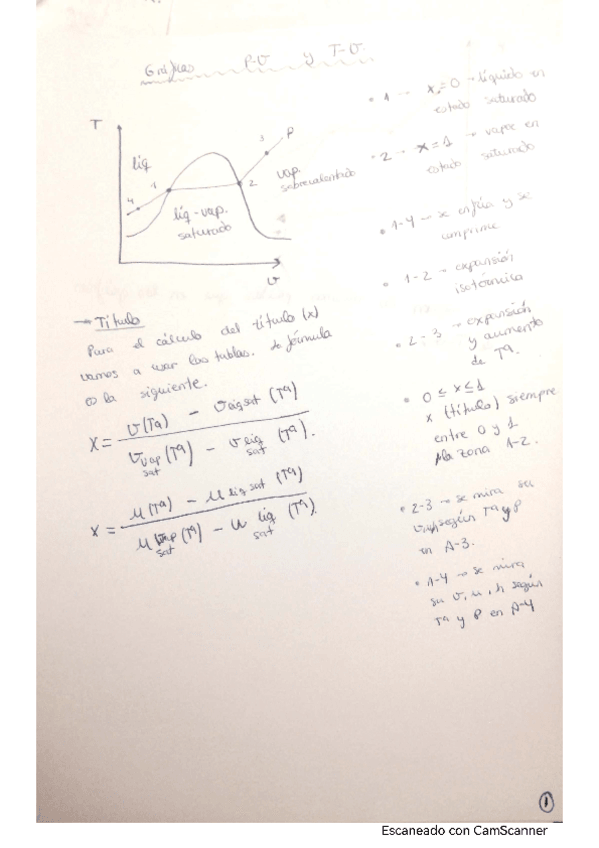 Gráficos P-v y T-v.
T
líq
4
1
líq-vap.
saturado
2
3
P
vap.
sobrecalentado
v
→ Título
Para el cálculo del título (x)
vamos a usar las tablas. La fórmula
es la siguiente.
x = v(Tª) - v líq sat (Tª) / v vap sat (Tª) - v líq sat (Tª).
x = u(Tª) - u líq sat (Tª) / u vap sat (Tª) - u líq sat (Tª).
• 1 → x=0 → líquido en
estado saturado
• 2 → x=1 → vapor en
estado saturado
• 1-4 → se enfría y se
comprime
• 1-2 → expansión
isotérmica
• 2-3 → expansión
y aumento
de Tª.
• 0 ≤ x ≤ 1
x (título) siempre
entre 0 y 1
zona 1-2.
• 2-3 → se mira su
según Tª y P
en A-3.
• 1-4 → se mira
su v, u, h según
Tª y P en A-4
1
Escaneado con CamScanner